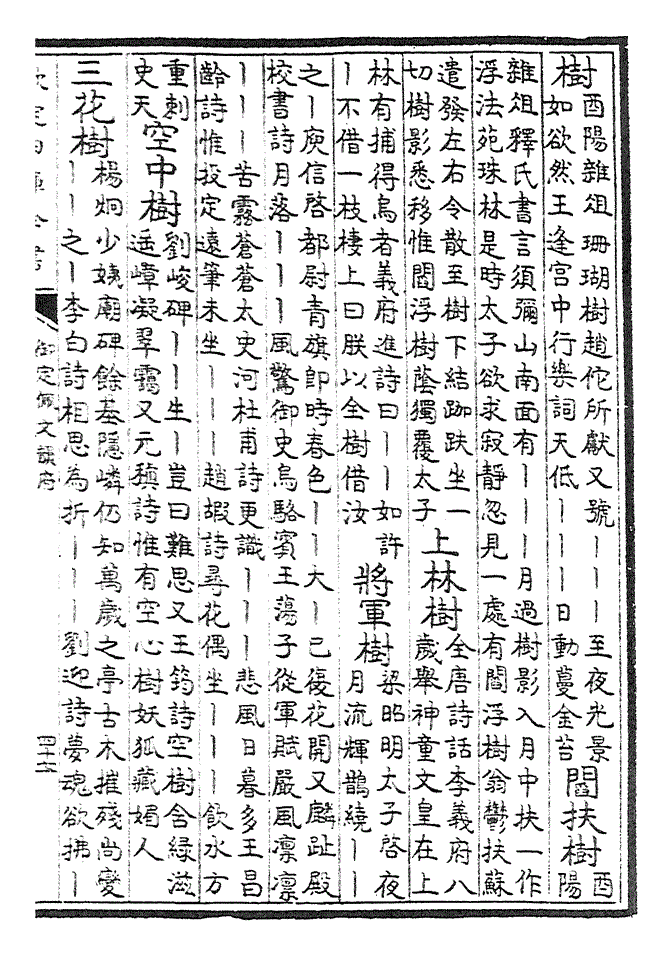 樹酉陽雜俎珊瑚樹趙佗所獻又號丨丨丨至夜光景
如欲然王逢宫中行樂詞天低丨丨丨日動蔓金苔
閻扶樹酉
陽
雜俎釋氏書言須彌山南面有丨丨丨月過樹影入月中扶一作
浮法苑珠林是時太子欲求寂靜忽見一處有閻浮樹翁鬱扶蘇
遣發左右令散至樹下結跏趺坐一
切樹影悉移惟閻浮樹蔭獨覆太子
上林樹全唐詩話李義府八
歲舉神童文皇在上
林有捕得烏者義府進詩曰丨丨如許
丨不借一枝棲上曰朕以全樹借汝
將軍樹梁昭明太子啓夜
月流輝鵲繞丨丨
之丨庾信啓都尉青旗即時春色丨丨大丨已復花開又麟趾殿
校書詩月落丨丨丨風驚御史烏駱賓王蕩子從軍賦嚴風凛凛
丨丨丨苦霧蒼蒼太史河杜甫詩更識丨丨丨悲風日暮多王昌
齡詩惟投定遠筆未坐丨丨丨趙嘏詩尋花偶坐丨丨丨飲水方
重刺
史天
空中樹劉峻碑丨丨生丨豈曰難思又王筠詩空樹含緑滋
遥嶂凝翠靄又元稹詩惟有空心樹妖狐藏媚人
三花樹楊炯少姨廟碑餘基隱嶙仍知萬歲之亭古木摧殘尚變
丨丨之丨李白詩相思為折丨丨丨劉迎詩夢魂欲拂丨
欽定四庫全書
御定佩文韻府
四十六